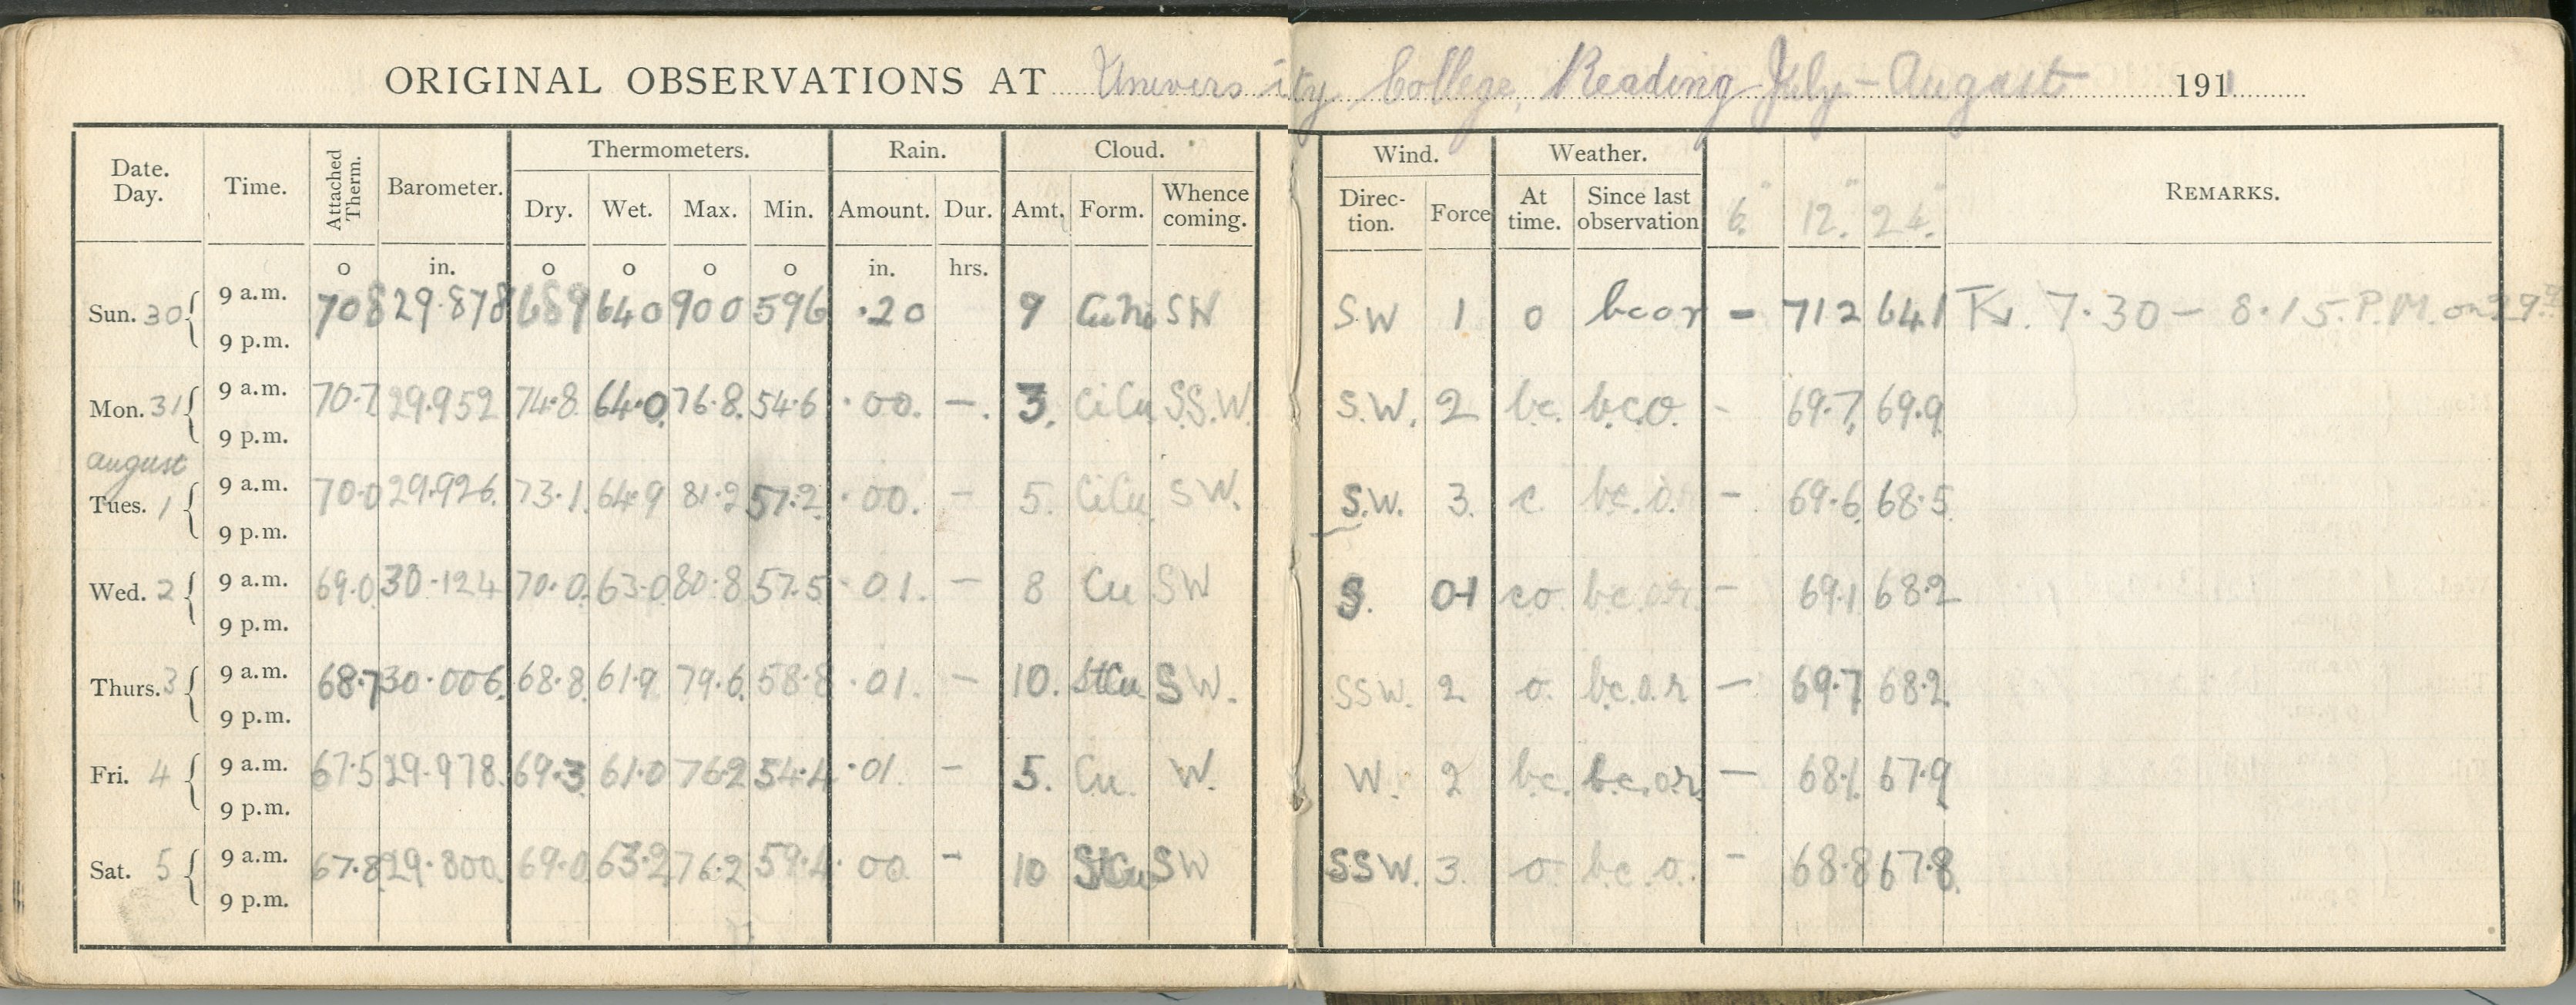 ORIGINAL OBSERVATIONS AT University College, Reading July – August 1911
Date. Day. Time. Attached Therm. Barometer. Thermometers. Rain. Cloud. Wind. Weather. REMARKS.
Dry. Wet. Max. Min. Amount. Dur. Amt. Form. Whence coming. Direc- tion. Force At time. Since last observation 6." 12." 24."
o in. o o o o in. hrs.
Sun. 30 9 a.m. 708 29.878 689 640 900 596 .20 9 CuNi SW S.W 1 o bcor - 712 641 7.30 – 8.15. P.M. on 29th
9 p.m.
Mon. 31 9 a.m. 70.7 29.952 74.8 64.0 76.8 54.6 .00. —. 3. CiCu S.S.W. S.W. 2 bc. b.c.o. - 69.7 69.9
9 p.m.
august
Tues. 1 9 a.m. 70.0 29.926. 73.1 64.9 81.2 57.2 .00. – 5. CiCu. SW. S.W. 3. c. bc.o.r – 69.6 68.5
9 p.m.
Wed. 2 9 a.m. 69.0 30.124 70.0 63.0 80.8 57.5 .01. – 8 Cu SW S. 0-1 co b.c.o.r. – 69.1 68.2
9 p.m.
Thurs. 3 9 a.m. 68.7 30.006. 68.8 61.9 79.6 58.8 .01. – 10. StCu SW. SSW. 2 o. b.c.o.r — 69.7 68.2
9 p.m.
Fri. 4 9 a.m. 67.5 29.978. 69.3 61.0 76.2 54.4 .01. – 5. Cu. W. W. 2 b.c. b.c.or — 68.1 67.9
9 p.m.
Sat. 5 9 a.m. 67.8 29.800 69.0 63.2 76.2 59.4 .00. - 10 StCu SW SSW. 3. o. b.c.o. - 68.8 67.8
9 p.m.